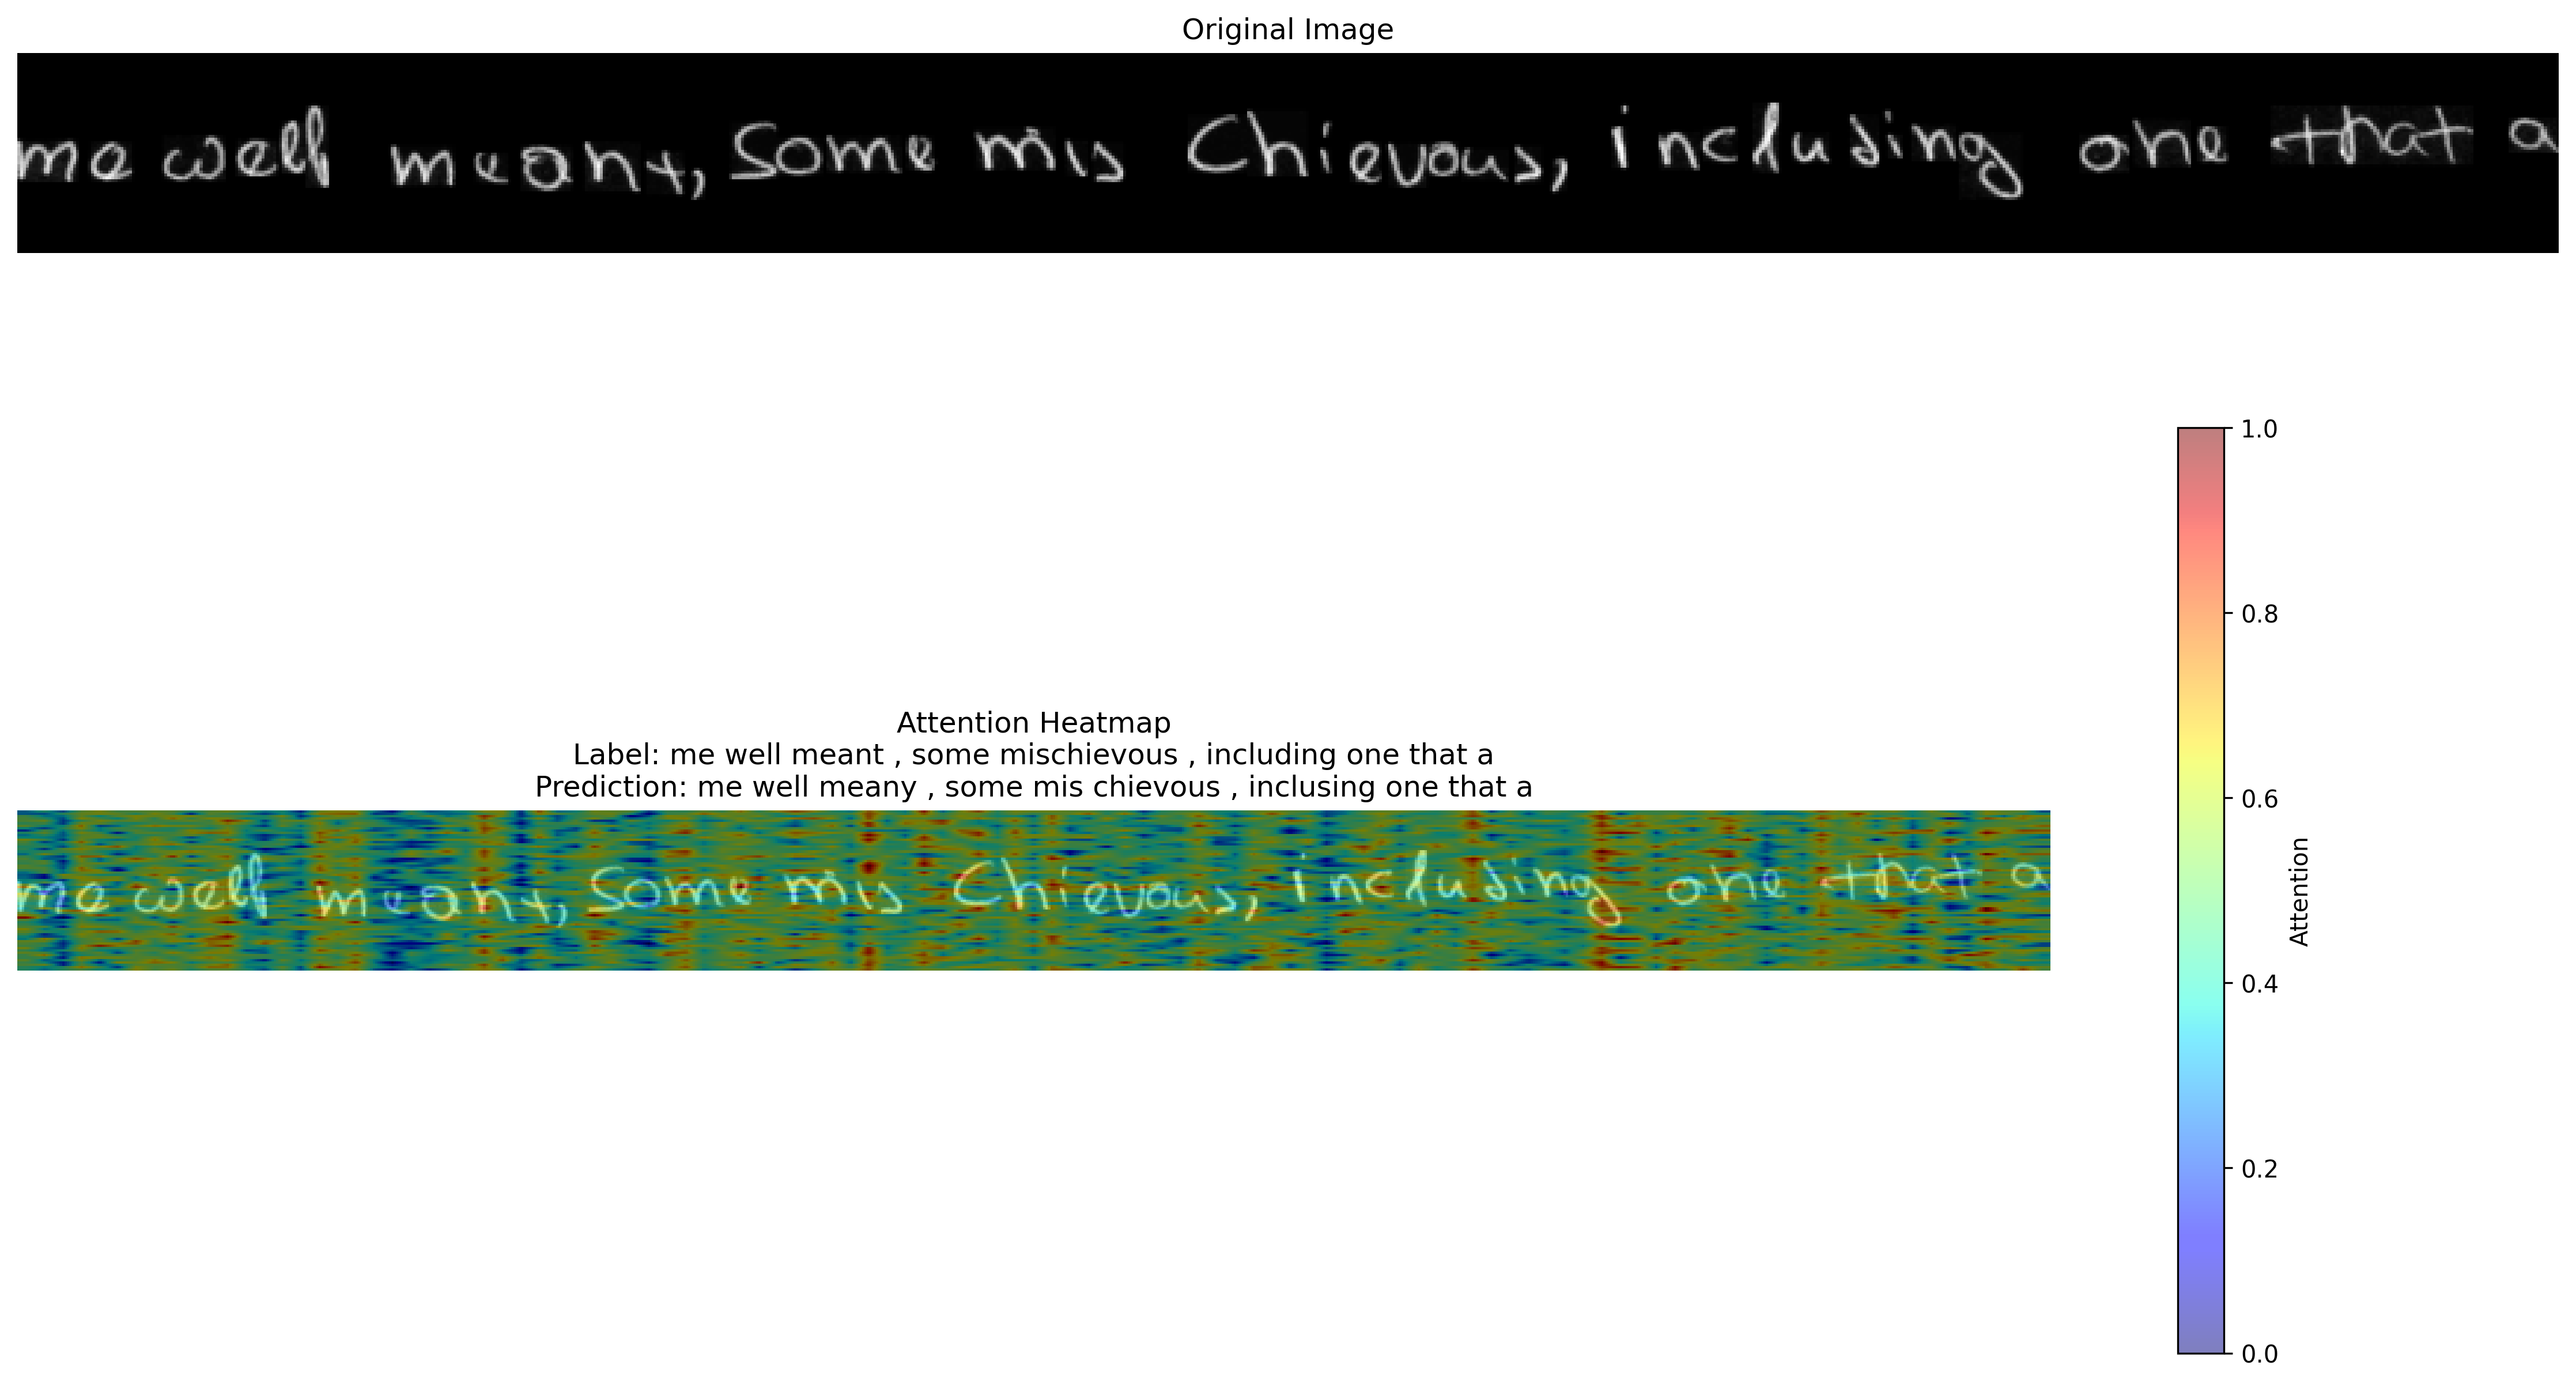 Original Image
me well meant, Some mis Chievous, including one that a
Attention Heatmap
Label: me well meant , some mischievous , including one that a
Prediction: me well meany , some mis chievous , inclusing one that a
me well meant, Some mis Chievous, including one that a
1.0
0.8
0.6
0.4
0.2
0.0
Attention